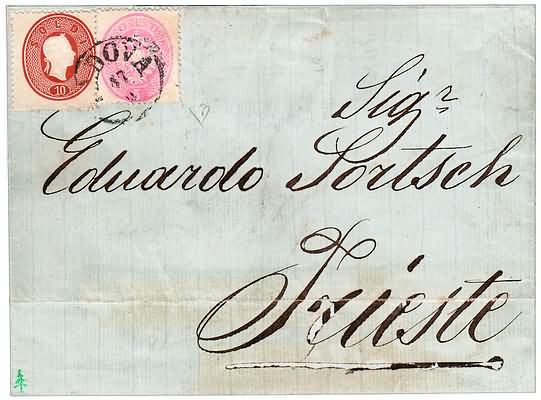 SOLDI
10
DOVA
17
Sig.r
Eduardo Sortsch
Trieste